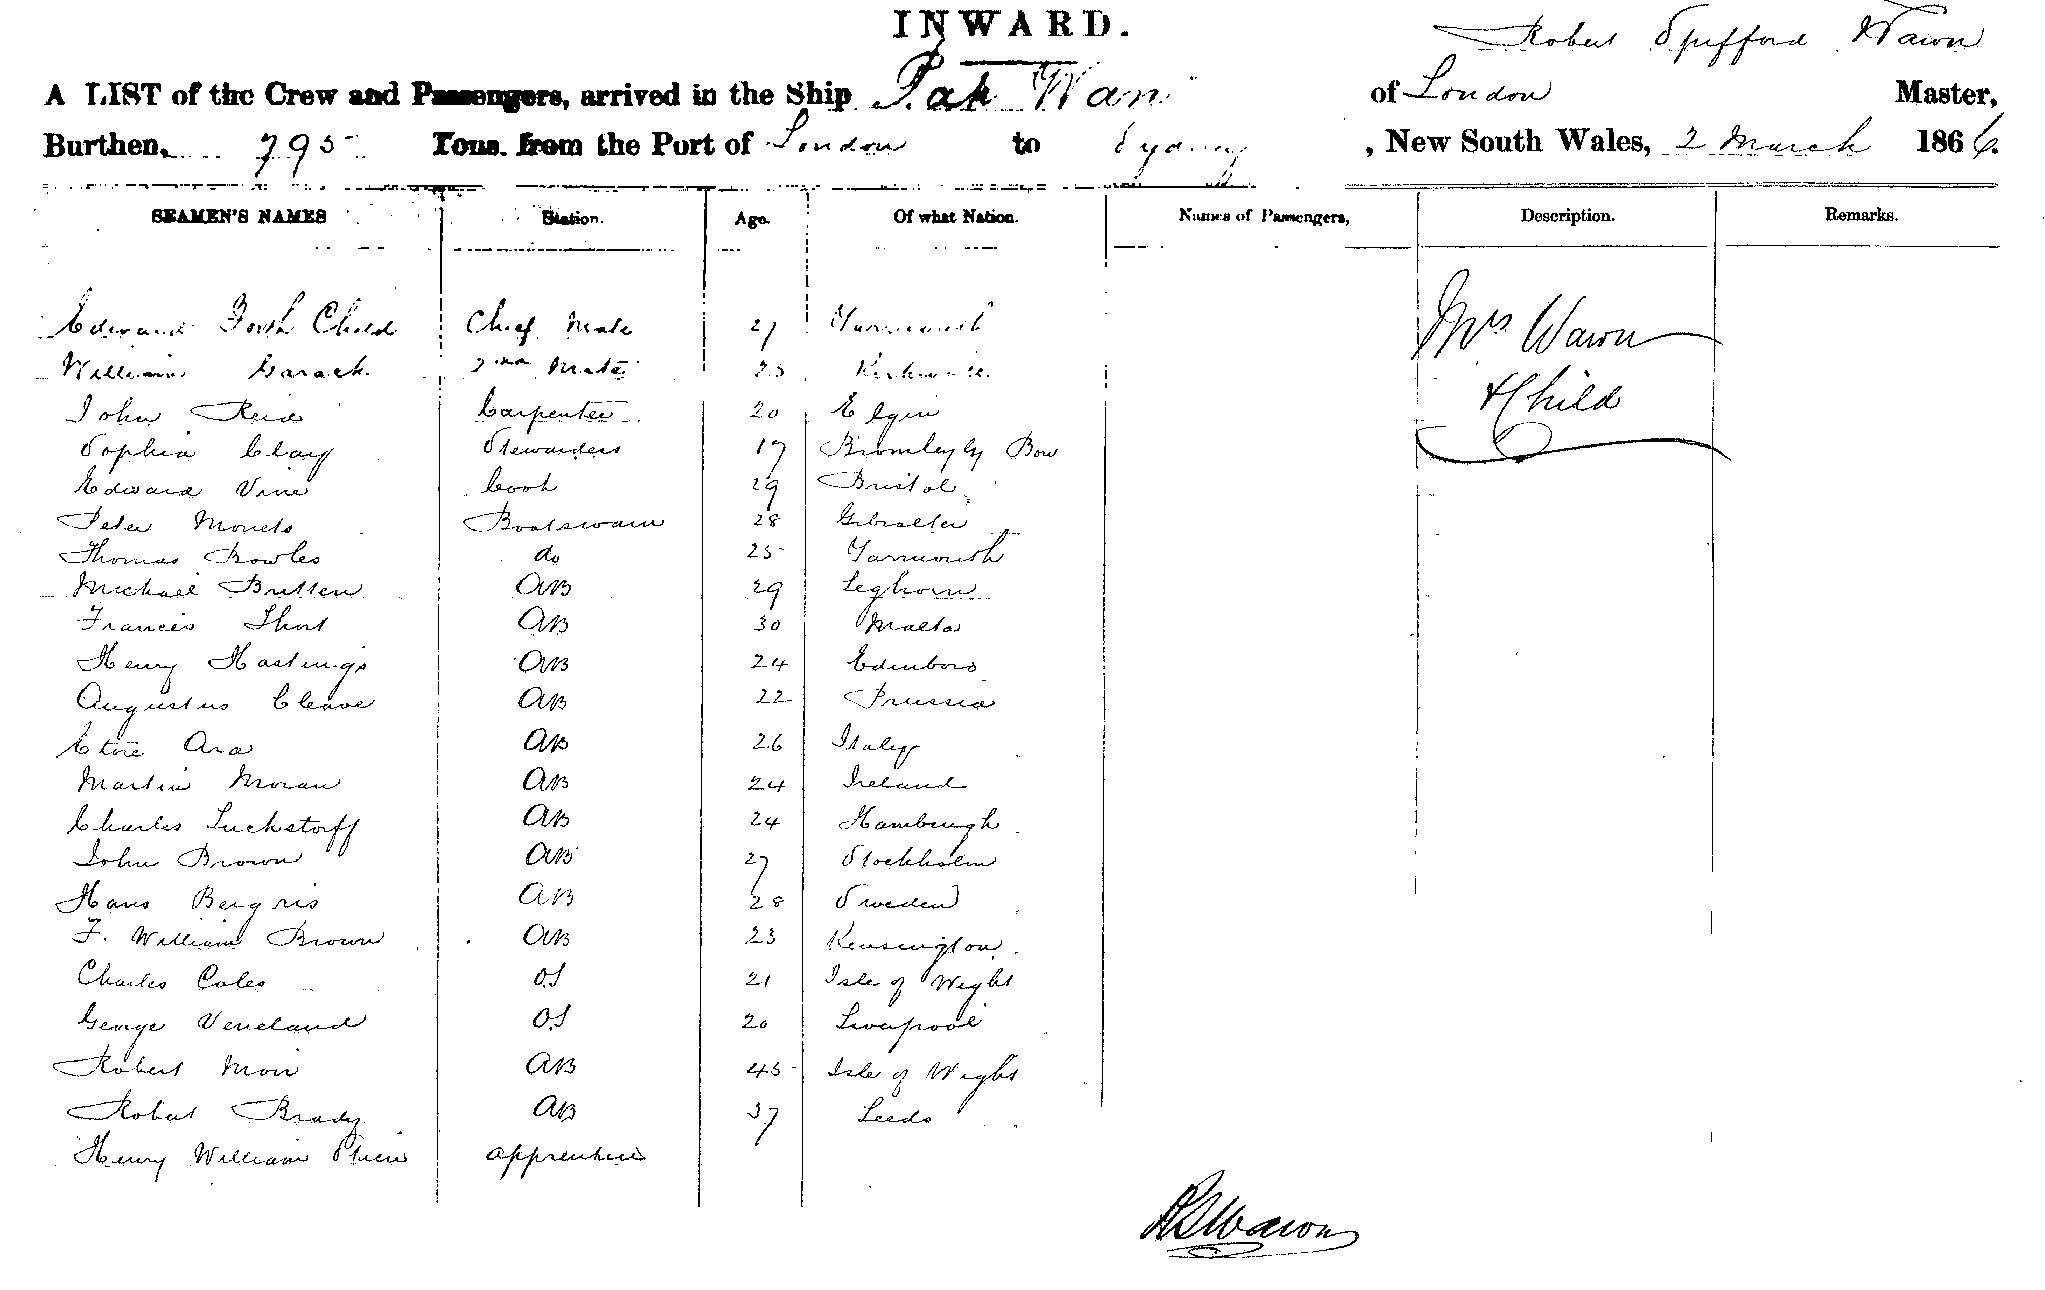 INWARD.
Robert Spifford Wawn
A LIST of the Crew and Passengers, arrived in the Ship Pak Wan of London Master,
Burthen, 795 Tons. from the Port of London to Sydney, New South Wales, 2 March 1866.
SEAMEN'S NAMES Station. Age. Of what Nation. Names of Passengers, Description. Remarks.
Edward Forth Child Chief Mate 27 Yarmouth
Mrs Wawn
William Garach 2nd Mate 25 Kirkwall
John Reid Carpenter 20 Elgin
& Child
Sophia Clary Stewardess 17 Bromley by Bow
Edward Vine Cook 29 Bristol
Peter Monets Boatswain 28 Gibralter
Thomas Bowles do 25 Yarmouth
Michael Britten AB 29 Leghorn
Francis Short AB 30 Malta
Henry Hastings AB 24 Edinboro
Augustus Cleave AB 22 Prussia
Etore Ara AB 26 Italy
Martin Moran AB 24 Ireland
Charles Luckstorff AB 24 Hamburgh
John Brown AB 27 Stockholm
Hans Bengris AB 28 Sweden
F. William Brown AB 23 Kensington
Charles Coles OS 21 Isle of Wight
George Veneland OS 20 Liverpool
Robert Moir AB 45 Isle of Wight
Robert Brady AB 37 Leeds
Henry William apprentice
RSWawn